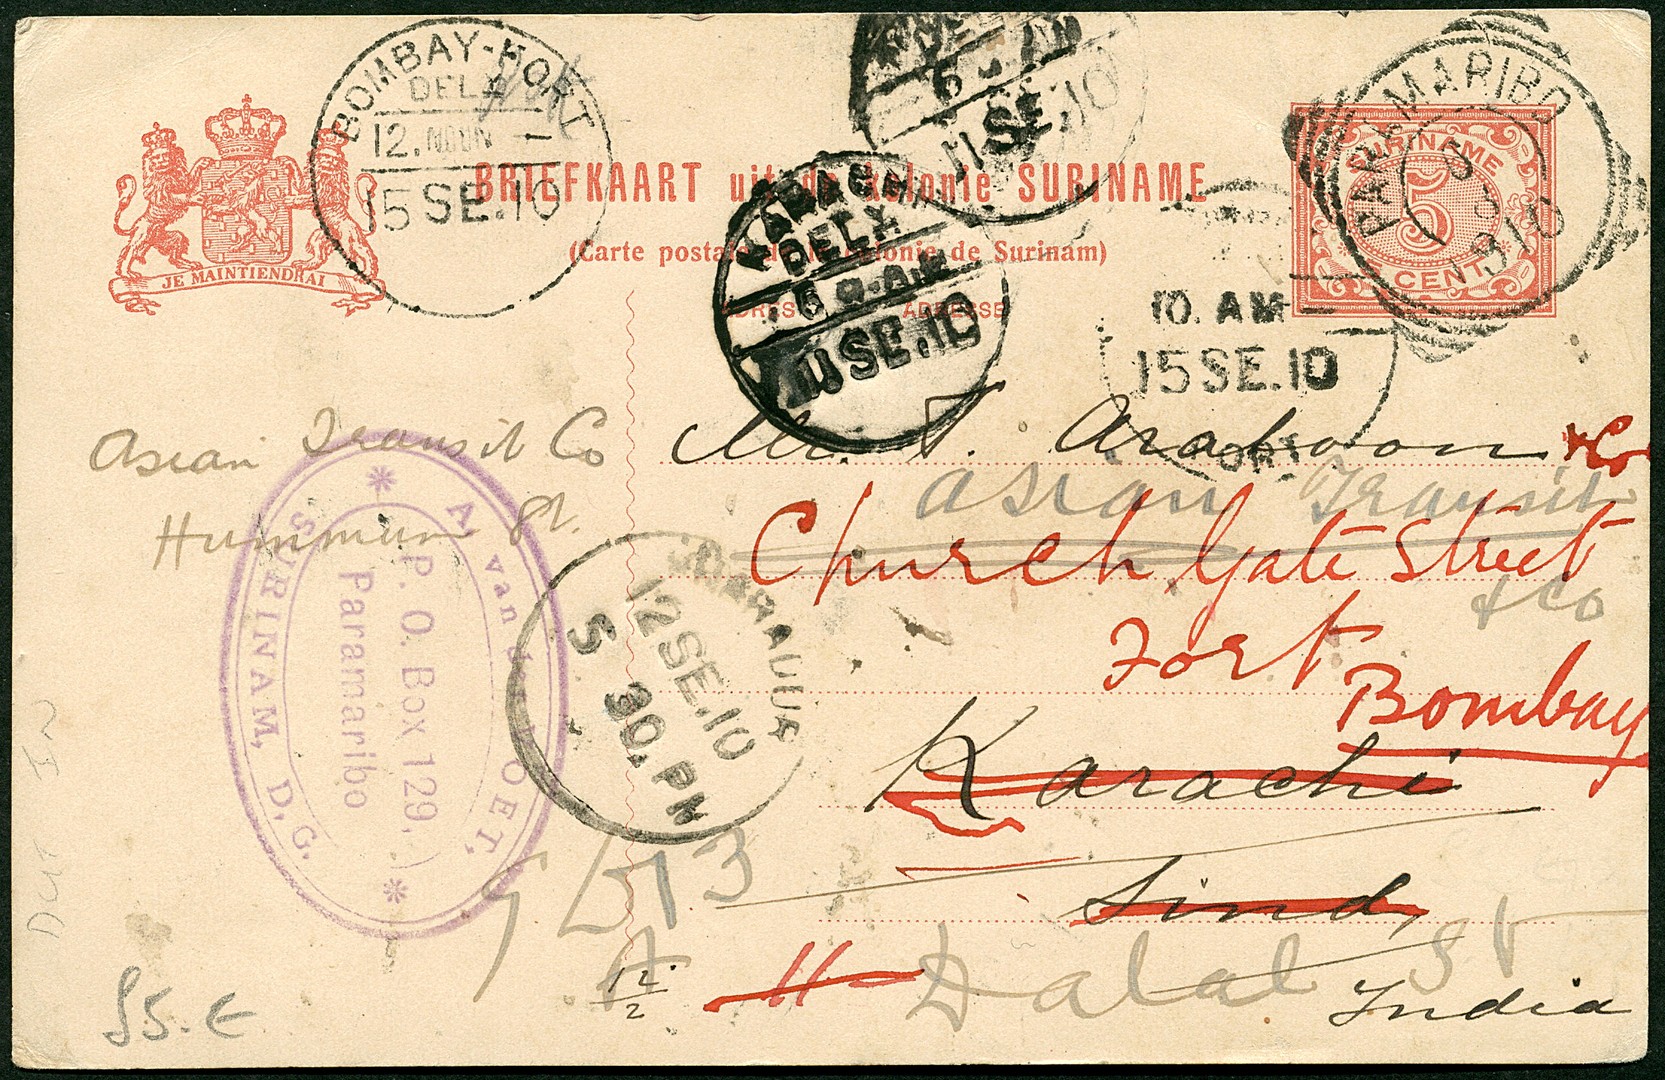 BOMBAY-FORT
DELY
12. NOON -
15 SE. 10
JE MAINTIENDRAI
BRIEFKAART uit de kolonie SURINAME
(Carte postale de la colonie de Surinam)
ADRES ADRESSE
KARACHI
DELY
5
11 SE. 10
11 SE. 10
PARAMARIBO
SURINAME
5
CENT
10. AM -
15 SE. 10
ORT
Asian Transit Co
Hummum St.
Mr. T. & Co
Asian Transit
Church Gate Street
& Co
Fort
Bombay
Karachi
Sind
Dalal St
India
12 SE. 10
5 30. PM
A. van der POET,
P. O. Box 129,
Paramaribo
SURINAM, D. G.
DUT IN
12
2